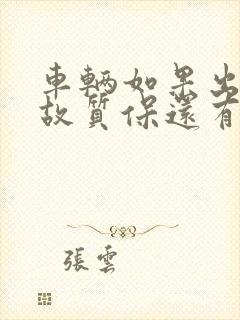 車輛如果出
故質保還有
張雲